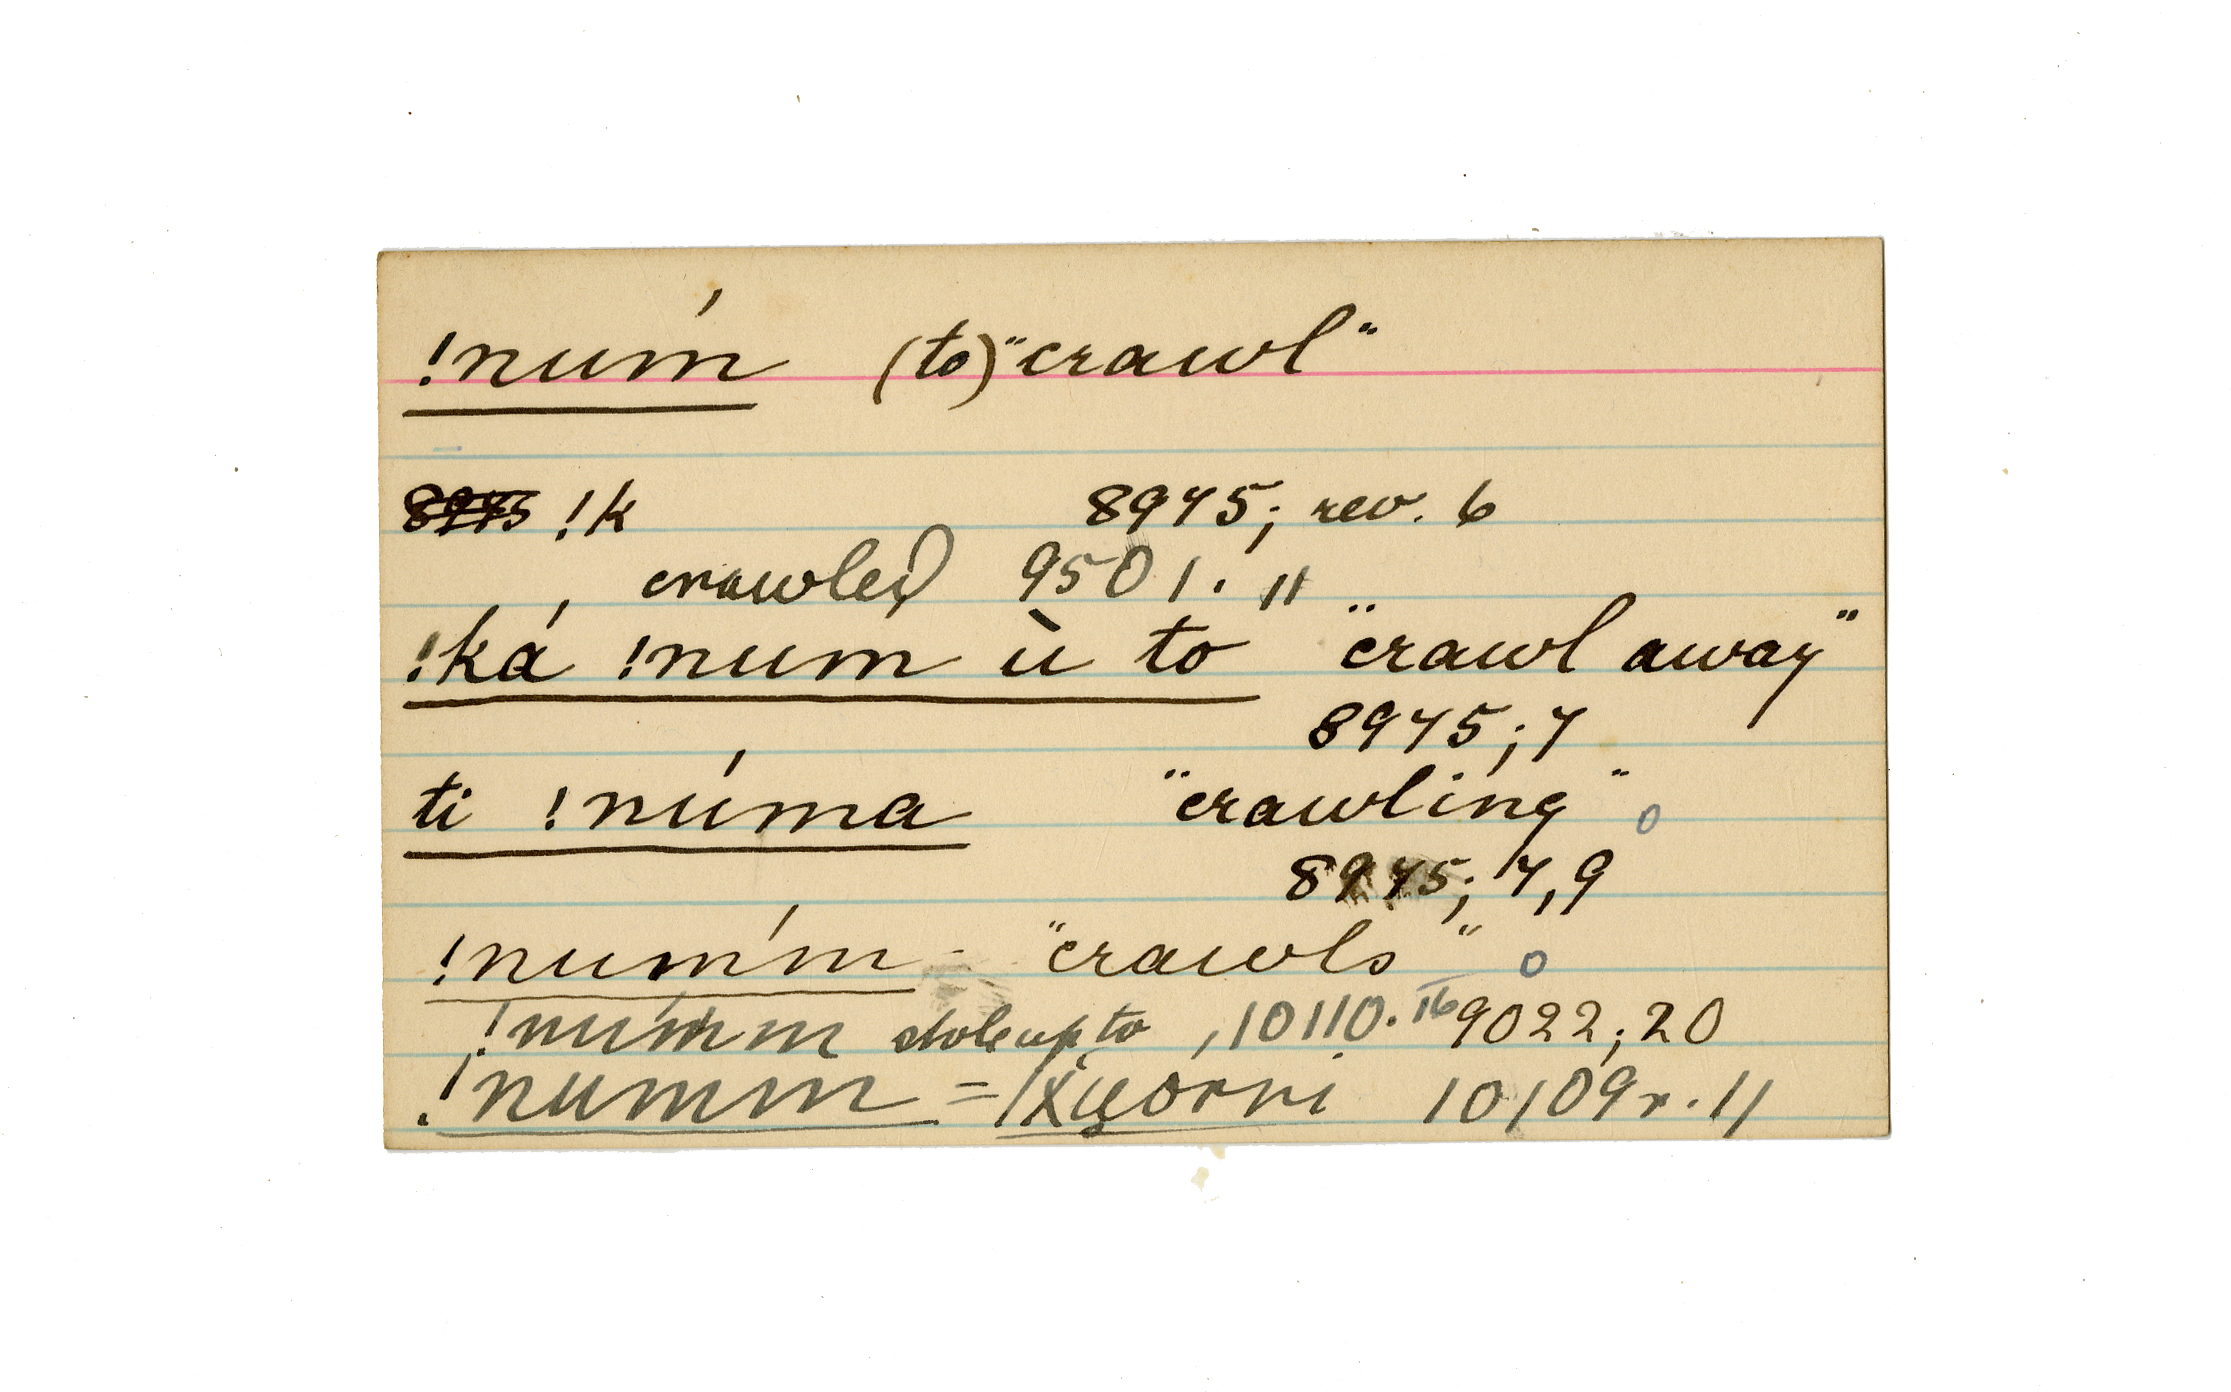 !núm (to) "crawl"
8975 !k 8975; rev. 6
crawled 9501. 11
!ká !num ù to "crawl away"
8975; 7
ti !núma "crawling" o
8975; 7, 9
!num'm - "crawls" o
!numm stole up to , 10110. 16 9022; 20
!numm = 10109 r. 11